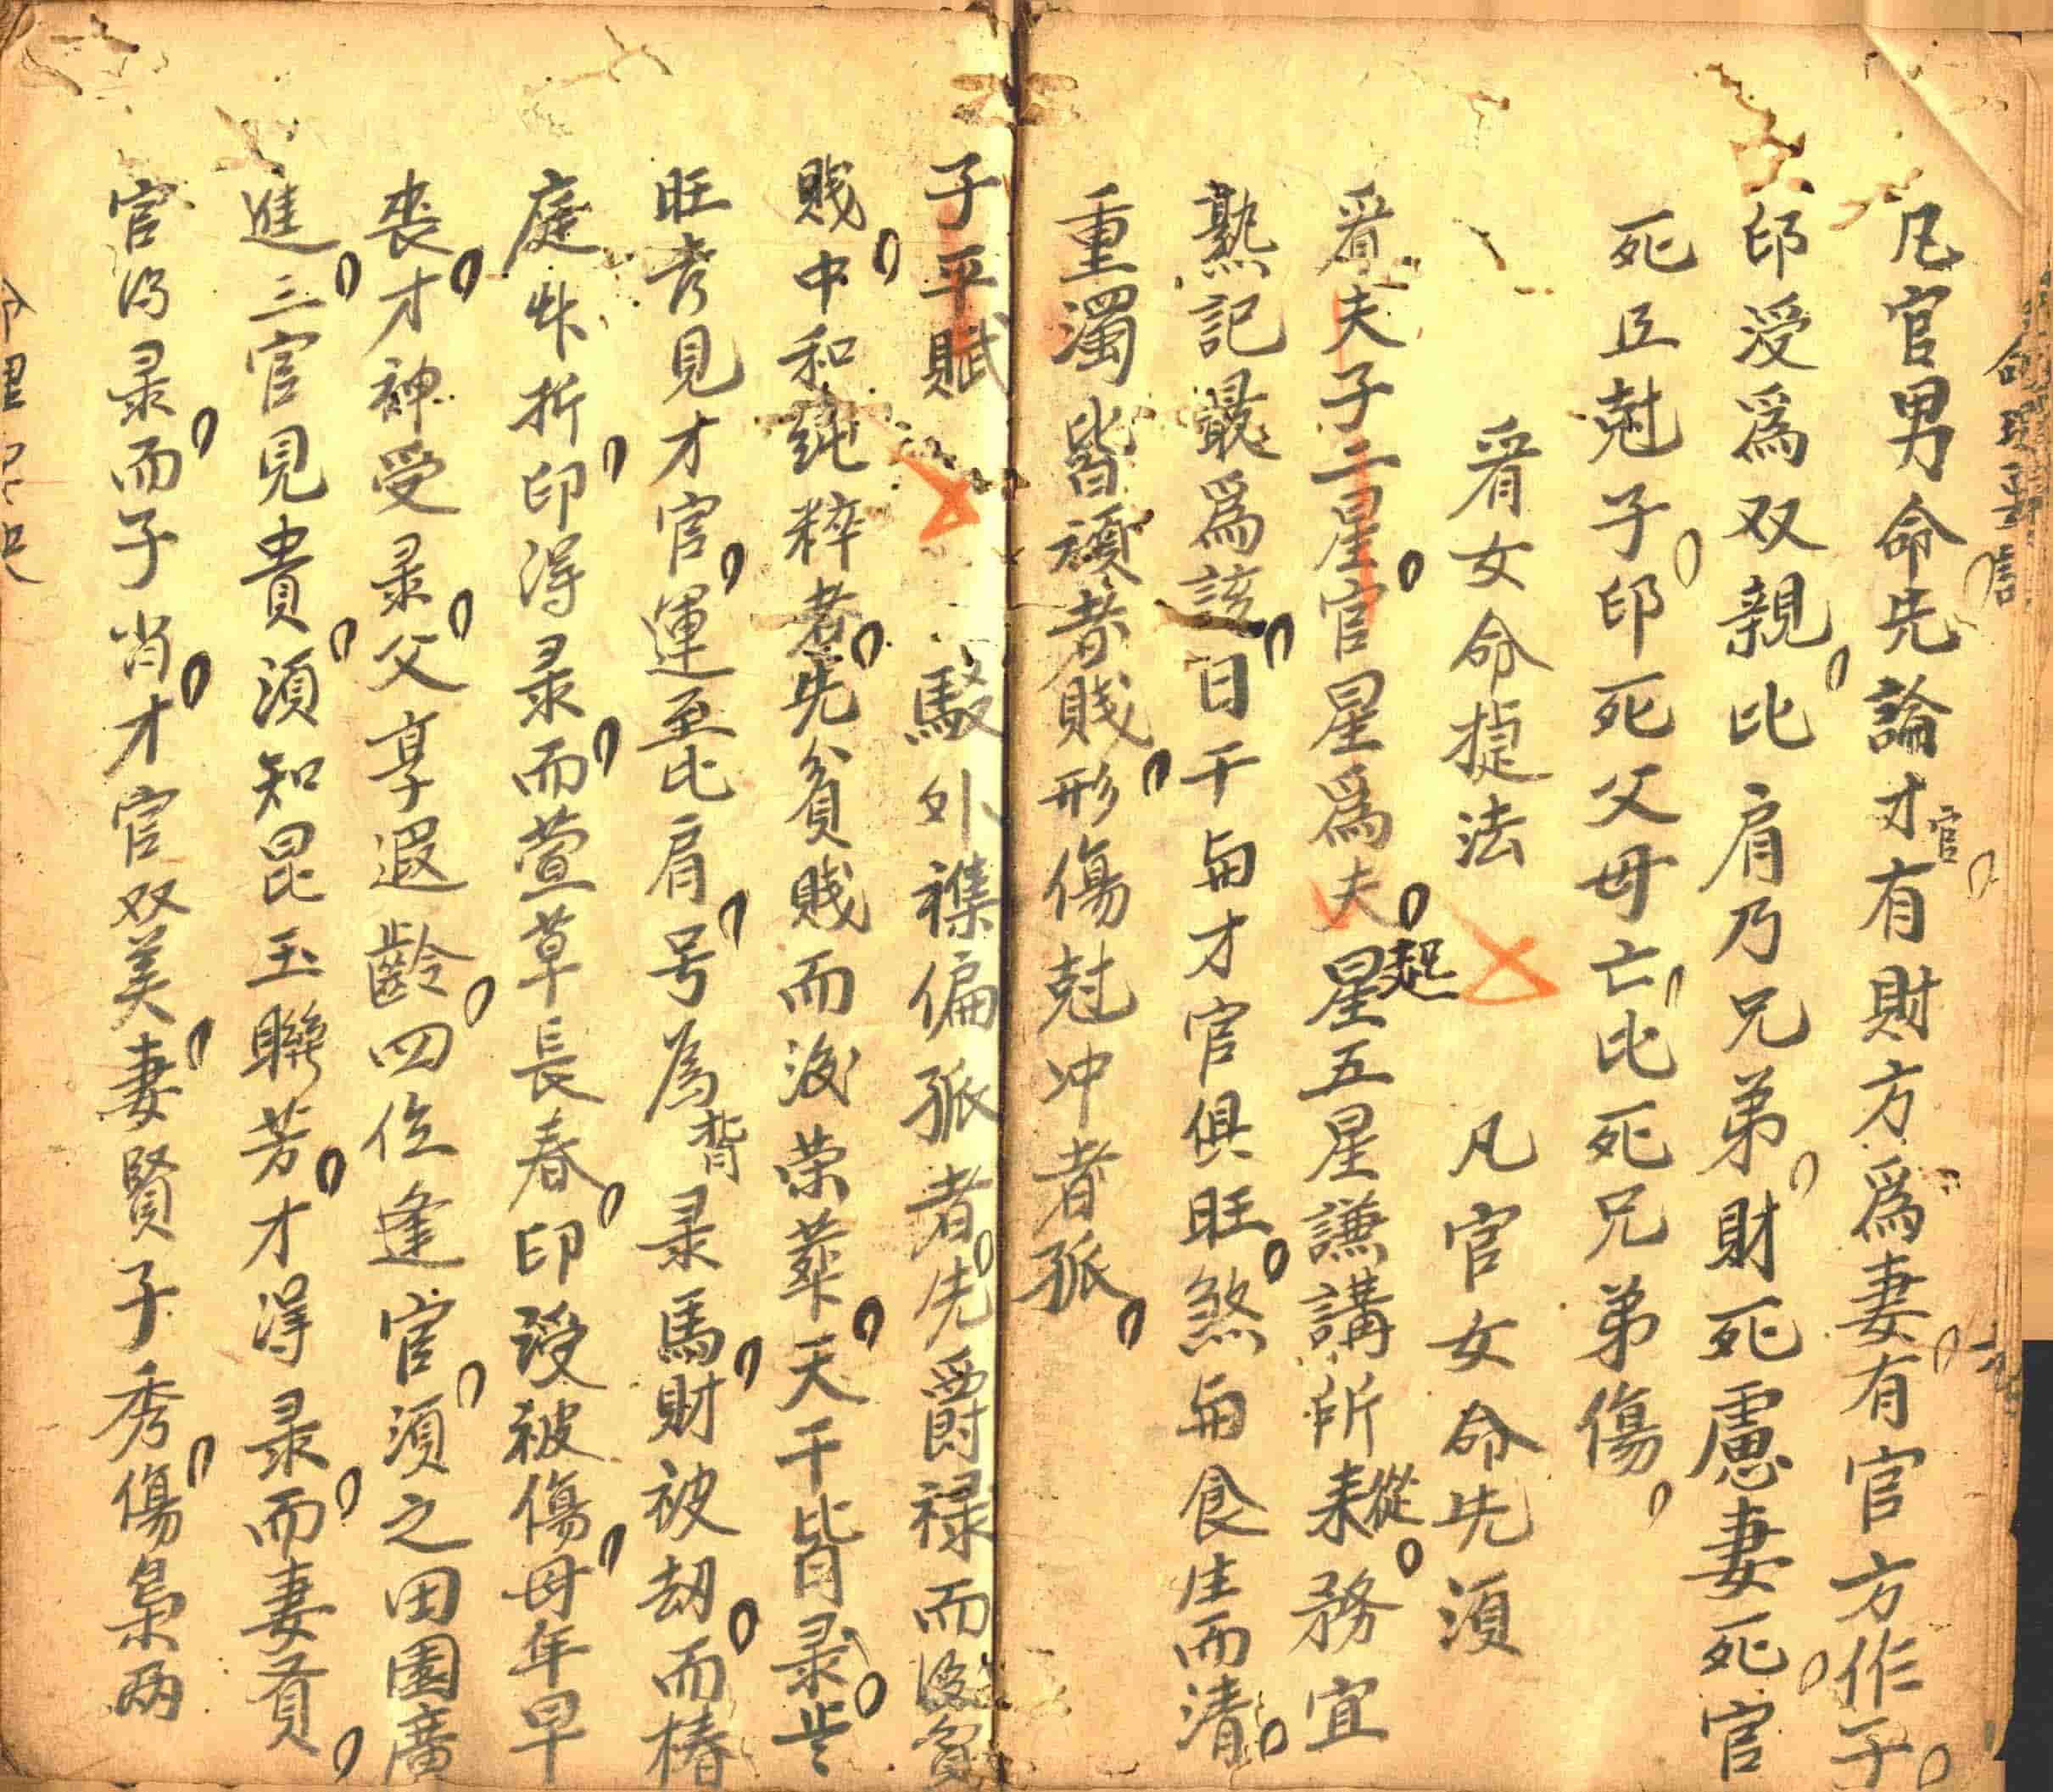 凡官男命先論才官有財方爲妻有官方作子
印授爲双親比肩乃兄弟財死慮妻死官
死丘尅子印死父母亡比死兄弟傷
看女命捷法 凡官女命先須
看夫子二星官星爲夫夫星起五星謙講所耒從務宜
熟記最爲該日干與才官俱旺煞與食生而清
重濁皆須者賤形傷尅冲者孤
子平賦 駁外襍偏孤者先爵禄而後貧
賎中和純粹者先貧賎而後荣華天干皆录
旺煮見才官運至比肩号為背录馬財被刼而椿
庭先折印淂录而萱草長春印授被傷母年早
丧才神受录父享遐齡四位逢官須之田園廣
進三官見貴須知昆玉聯芳才淂录而妻賢
官淂录而子肖才官双美妻賢子秀傷枭兩